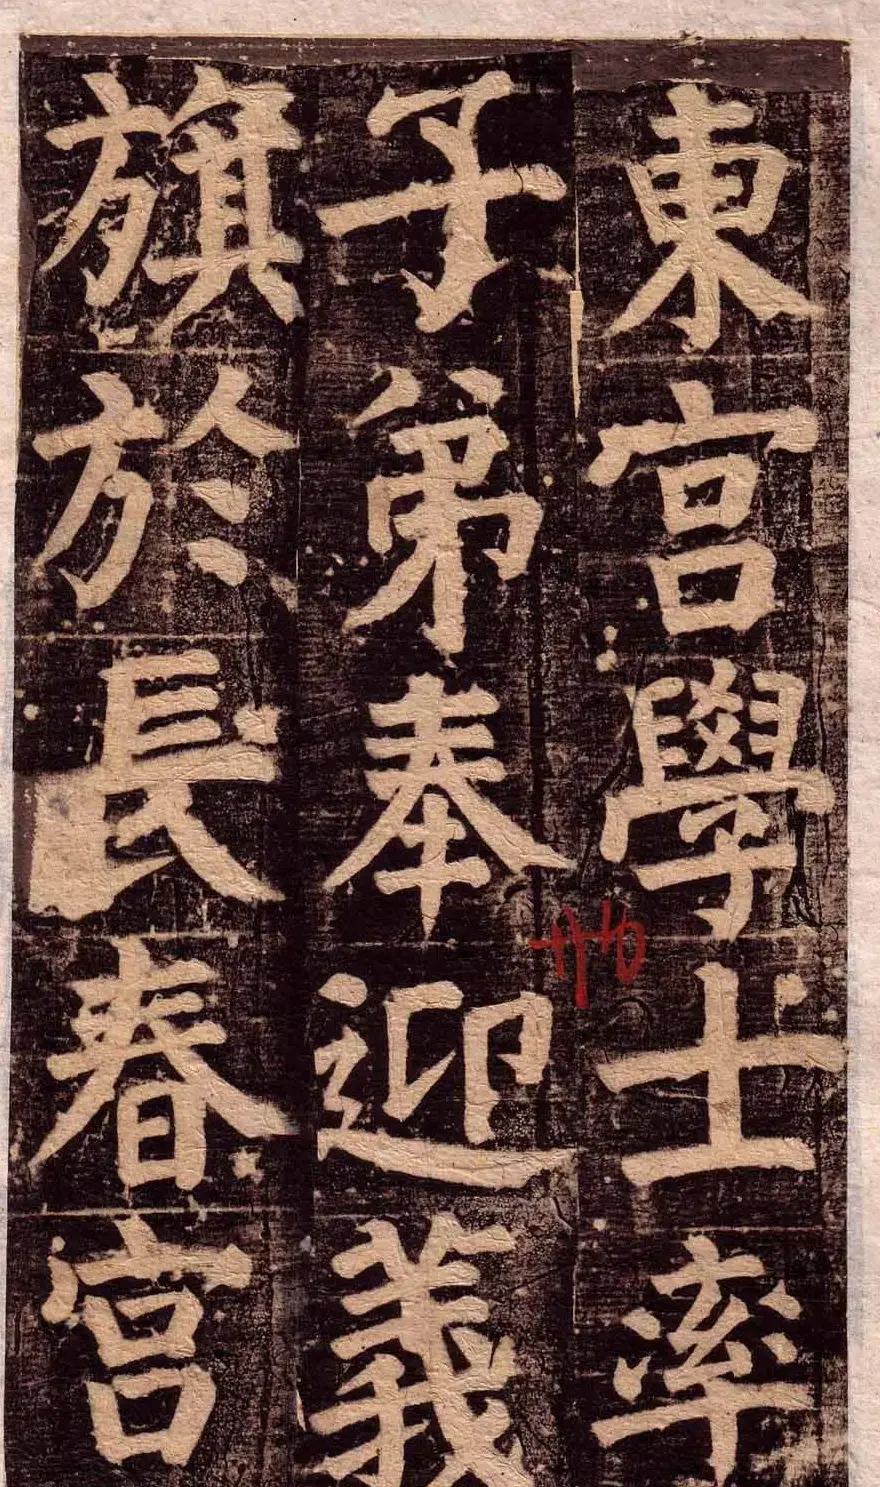 東宮學士率
子弟奉迎義
旗於長春宮